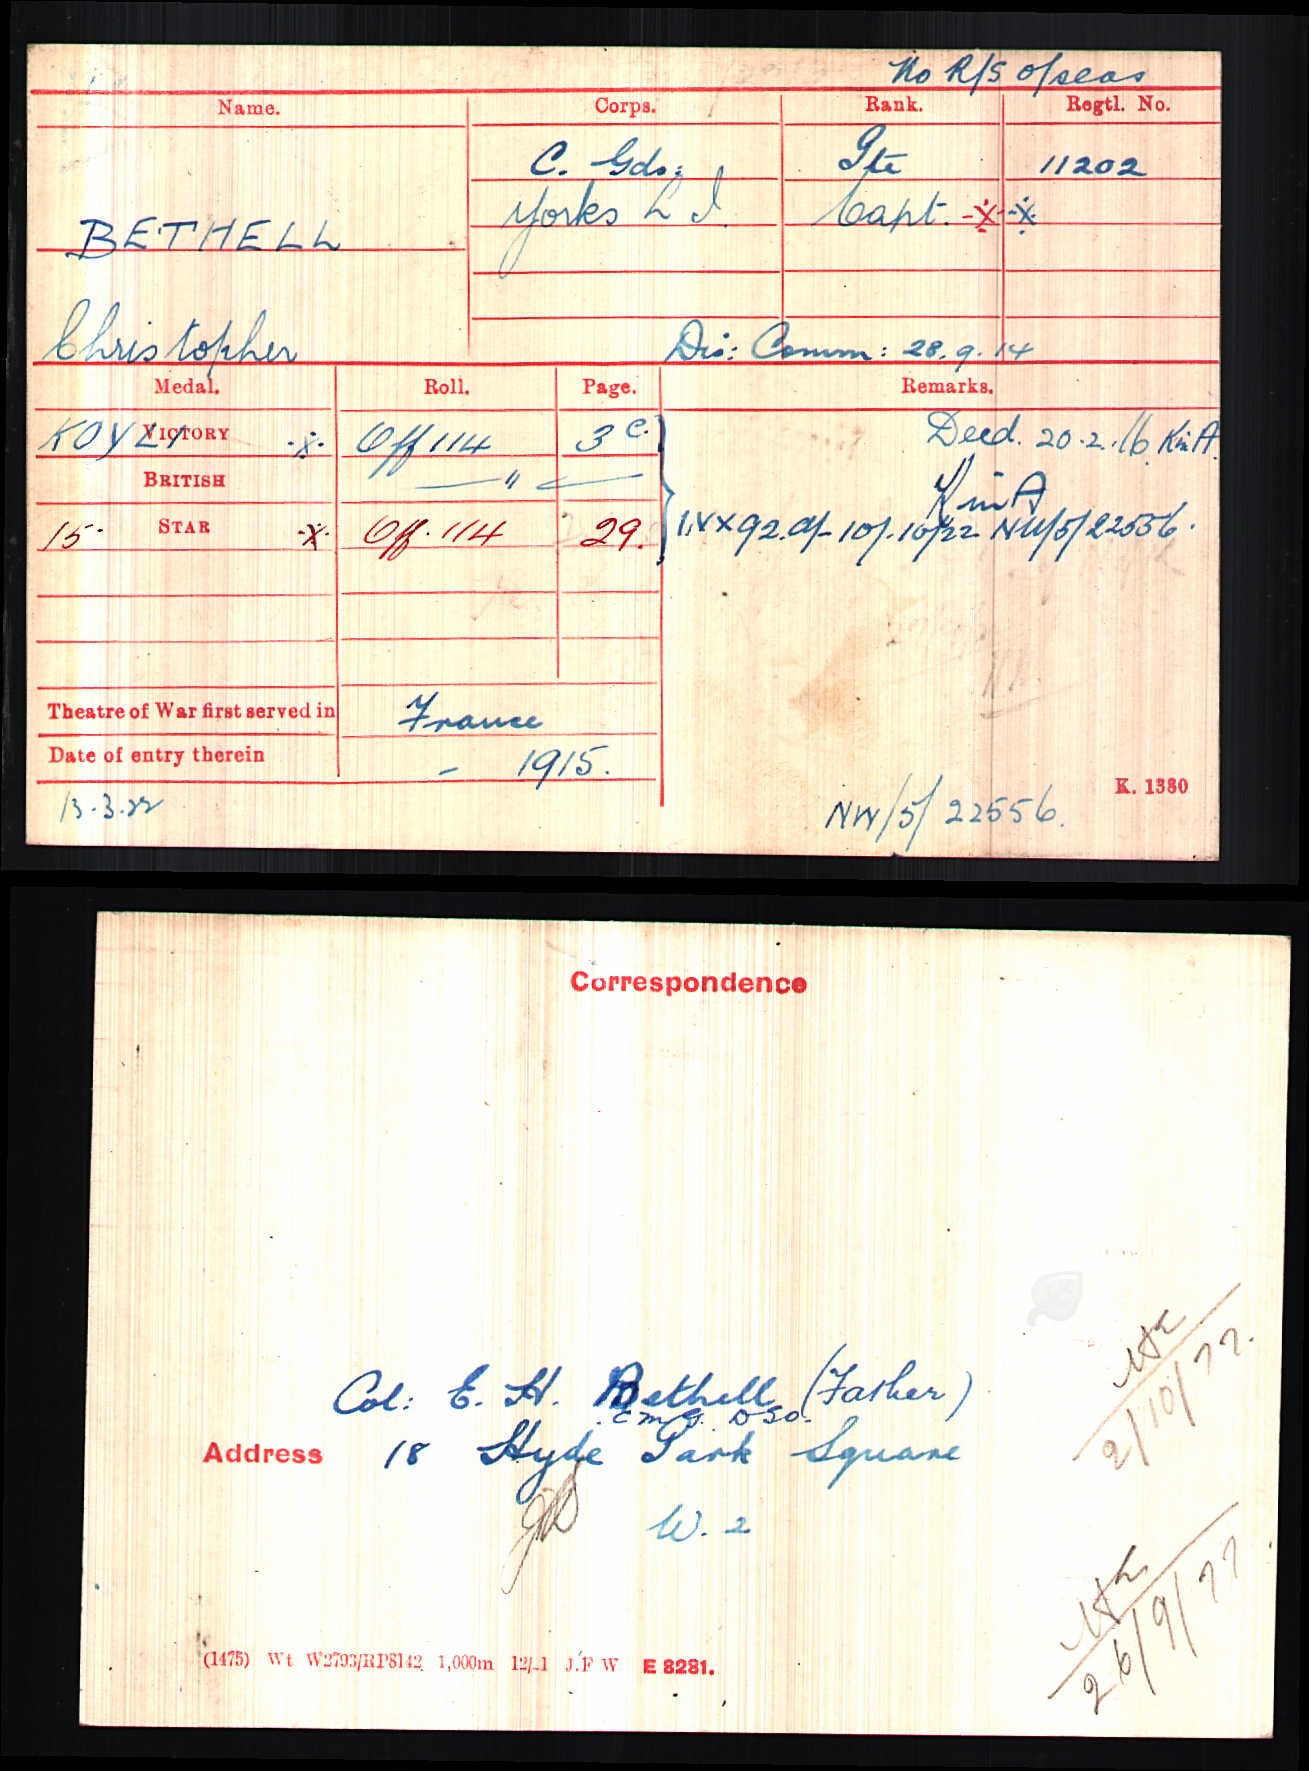 No R/S o/seas
Name. Corps. Rank. Regtl. No.
C. Gds: Pte 11202
BETHELL Yorks L I. Capt. -X- -X-
Christopher Dis: Comm: 28.9.14
Medal. Roll. Page. Remarks.
KOYLI VICTORY -X- Off 114 3 C. Deed. 20.2.16 K in A.
BRITISH — " — K in A
15 STAR -X- Off. 114 29. IVX 92 of 10/10/22 NW/5/22556.
Theatre of War first served in France
Date of entry therein - 1915.
K. 1380
13.3.22 NW/5/22556.
Correspondence
Col: E. H. Bethell (Father)
C M G. D S O.
Address 18 Hyde Park Square
W. 2
2/10/22.
26/9/22
(1475) Wt W2793/RP8142 1,000m J.F W E 8281.